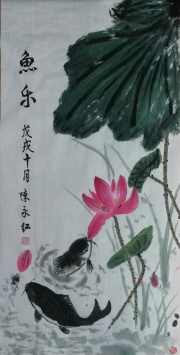 魚乐
戊戌十月 陳永红